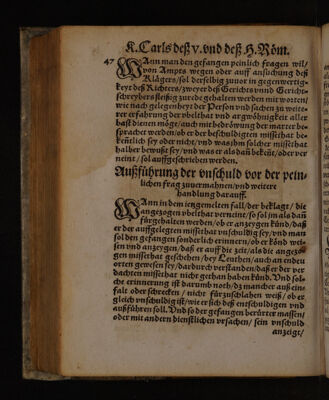 K. Carls deß v. vnd deß H. Röm.
47
WAnn man den gefangen peinlich fragen wil/
von Ampts wegen oder auff ansuchung deß
Klägers/ sol derselbig zuuor in gegenwertig-
keyt deß Richters/ zweyer deß Gerichts vnnd Gericht-
schreybers fleißig zu rede gehalten werden mit worten/
wie nach gelegenheyt der Person vnd sachen zu weite-
rer erfahrung der vbelthat vnd argwönigkeit aller
bast dienen möge/ auch mit bedröwung der marter be-
spracher werden/ ob er der beschuldigten missethat be-
kentlich sey oder nicht/ vnd was jhm solcher missethat
halber bewußt sey/ vnd was er als dañ bekeñt/ oder ver
neint/ sol auffgeschrieben werden.
Außführung der vnschuld vor der pein-
lichen frag zuuermahnen/ vnd weitere
handlung darauff.
WAnn in dem ietzgemelten fall/ der beklagt/ die
angezogen vbelthat verneint/ so sol jm als dañ
fürgehalten werden/ ob er anzeygen könd/ daß
er der auffgelegten missethat vnschuldig sey/ vnd man
sol den gefangen sonderlich erinnern/ ob er könd wei-
sen vnd anzeygen/ daß er auff die zeit/ als die angezo-
gen missethat geschehen/ bey Leuthen/ auch an enden
orten gewesen sey/ dardurch verstanden/ daß er der ver
dachten missethat nicht gethan haben künd. Vnd sol-
che erinnerung ist darumb noth/ dz mancher auß ein-
falt oder schrecken/ nicht fürzuschlahen weiß/ ob er
gleich vnschuldig ist/ wie er sich deß entschuldigen vnd
außführen soll. Vnd so der gefangen berürter massen/
oder mit andern dienstlichen vrsachen/ sein vnschuld
anzeigt/